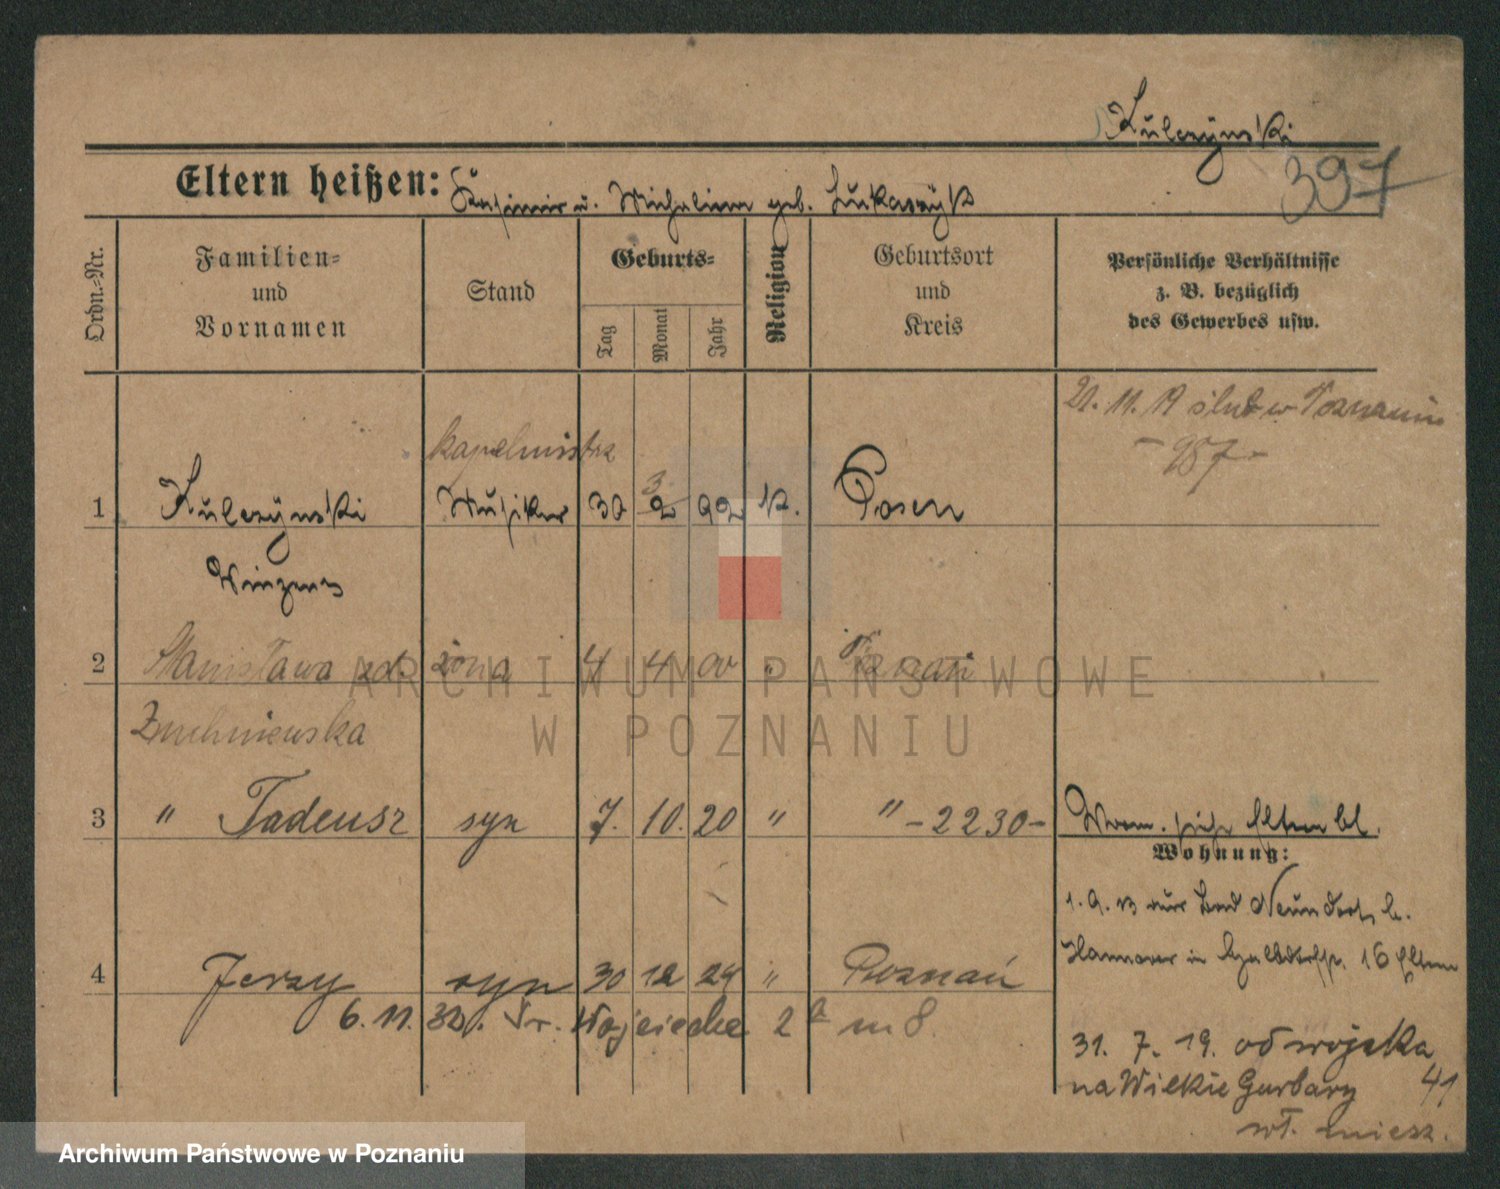 Kulczynski
397
Eltern heißen: Kasimir u. Michalina geb. Lukaszyk
Ordn.-Nr.
Familien-
und
Vornamen
Stand
Geburts-
Tag
Monat
Jahr
Religion
Geburtsort
und
Kreis
Persönliche Verhältnisse
z. B. bezüglich
des Gewerbes usw.
21. 11. 19 ślub w Poznaniu
- 987 -
kapelmistrz
3
1 Kulczynski Musiker 30 2 92 k. Posen
Vinzens
2 Stanisława zd. żona 4 4 00 " Poznań
Zuchniewska
3 " Tadeusz syn 7. 10. 20 " " -2230-
Eltern bl.
Wohnung:
1. 9. 13 Bad Neundorf b.
Hannover in 16 Eltern
4 Jerzy syn 30 12 24 " Poznań
6. 11. 30. Św. Wojciecha 2a m 8.
31. 7. 19. od wojska
na Wilkie Garbary 41
wł. miesz.
ARCHIWUM PAŃSTWOWE
W POZNANIU
Archiwum Państwowe w Poznaniu